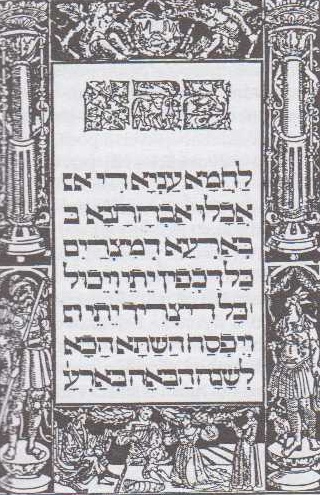 כהא
לַחְמָא עַנְיָא דִי
אֲכָלוּ אַבְהָתָנָא ב
בְּאַרְעָא דְמִצְרַיִם
כָּל דִכְפִין יֵתֵי וְיֵכוֹל
וְכָל דִיצְרִיךְ יֵתֵי
וְיִפְסַח הַשַׁתָּא הָכָא
לְשָׁנָה הַבָּאָה בְּאַרְעָ